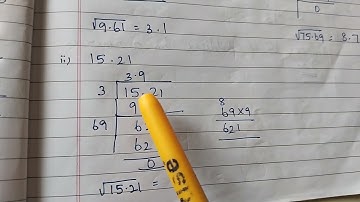 √9.61 = 3.1
0
√75.69 = 8.7
ii) 15.21
3.9
3 15.21
9
69 6
62
0
8
69×9
621
√15.21 =